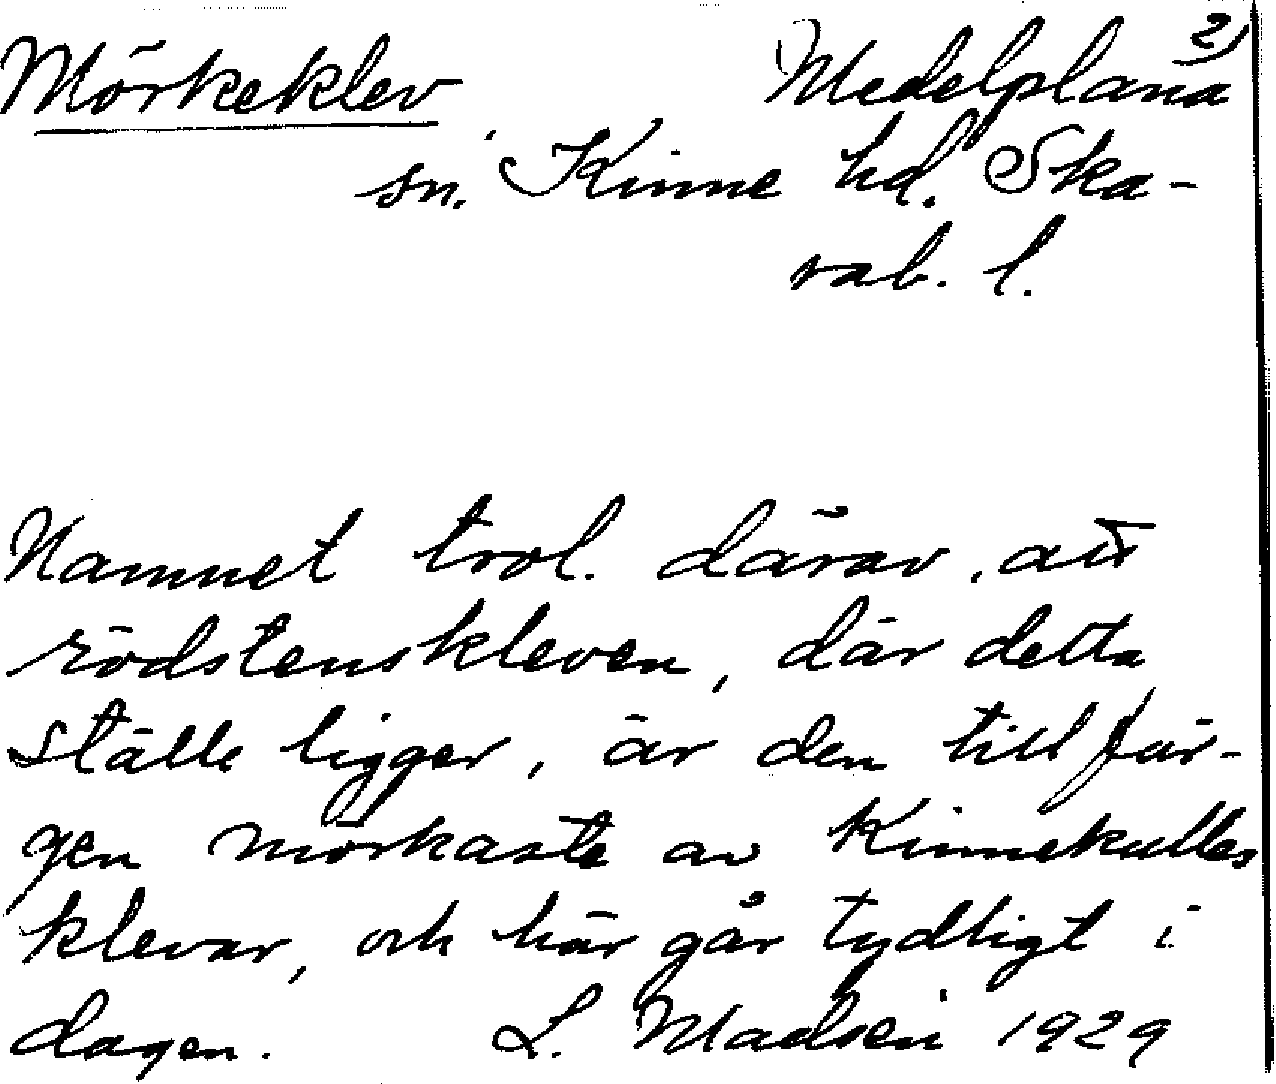 2)
Mörkeklev Medelplana
sn. Kinne hd. Ska-
rab. l.
Namnet trol. därav, att
rödstenskleven, där detta
ställe ligger, är den till fär-
gen mörkaste av Kinnekulles
klevar, och här går tydligt i
dagen. L. Madsen 1929